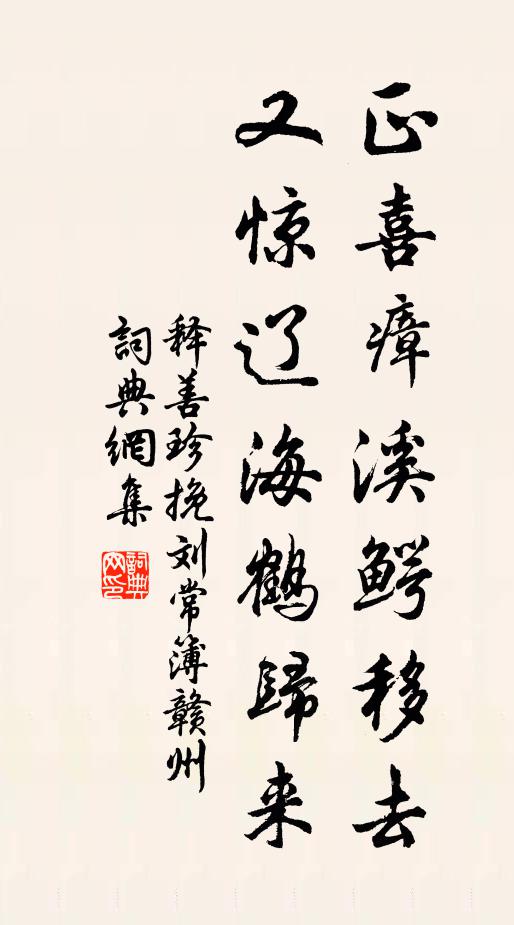 正喜瘴溪鳄移去
又惊辽海鹤歸来
释善珍挽刘常簿赣州
詞典網集
詞典网印